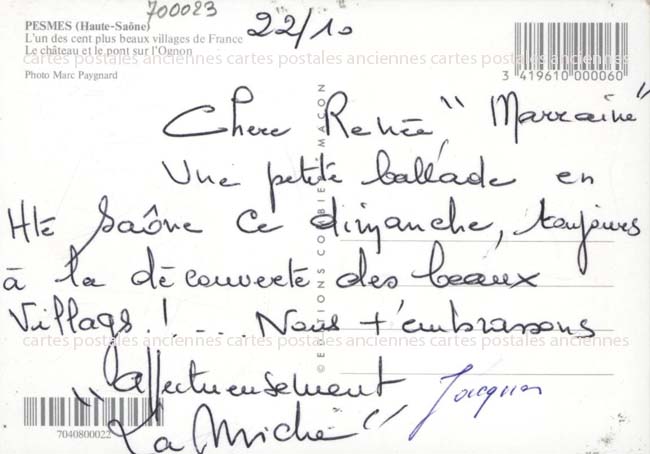 700023
PESMES (Haute-Saône)
L'un des cent plus beaux villages de France
Le château et le pont sur l'Ognon
Photo Marc Paygnard
22/10
3 419610 000060
cartes postales anciennes cartes postales anciennes cartes postales anciennes
Chere Renée, "Marraine"
Une petite ballade en
Hte Saône ce dimanche, toujours
à la découverte des beaux
Villags ! .... Nous t'embrassons
cartes postales anciennes cartes postales anciennes cartes postales anciennes
affectueusement
"La Miche" Jacques
7040800022
© EDITIONS COMBIER MACON